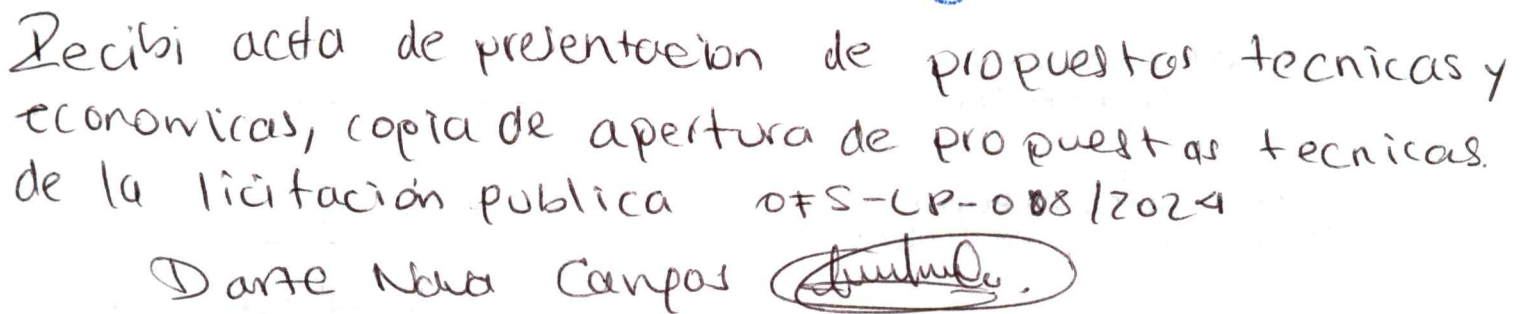 Recibi acta de presentacion de propuestas tecnicas y
economicas, copia de apertura de propuestas tecnicas.
de la licitación publica OFS-LP-008/2024
Dante Nava Campos